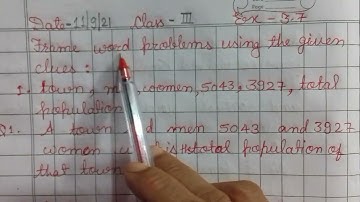 Date-11/9/21 Class-III Ex-3.7
Frame word problems using the given
clues:
town, men, women, 5043, 3927, total
population
Q1. A town men 5043 and 3927
women is total population of
that town